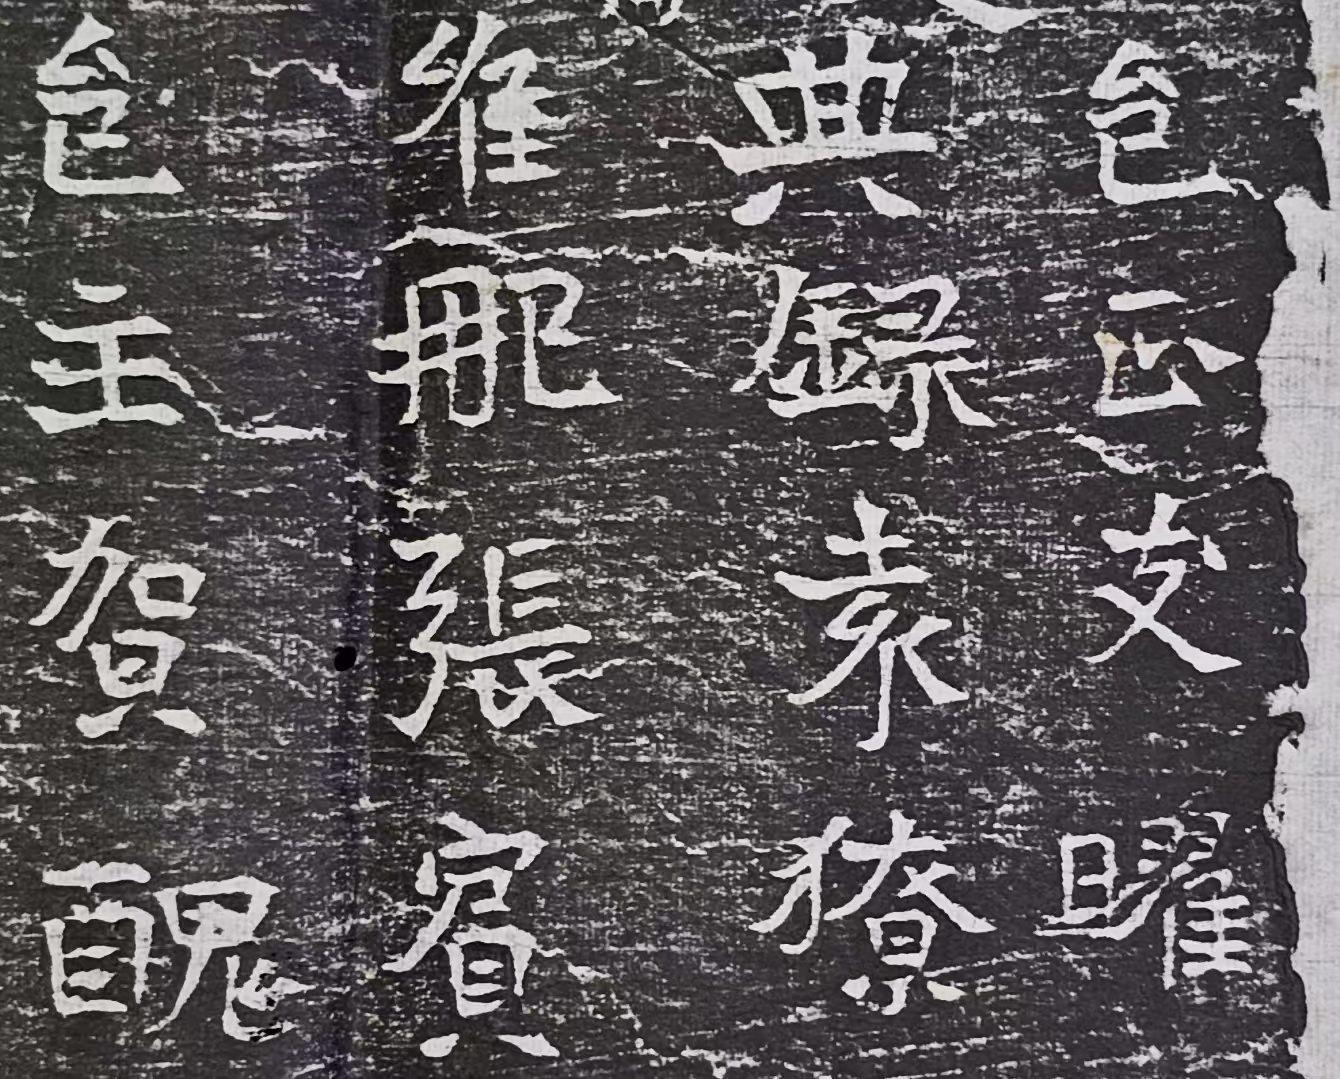 邑正支曜
典錄袁獠
維那張賓
邑主賀醜